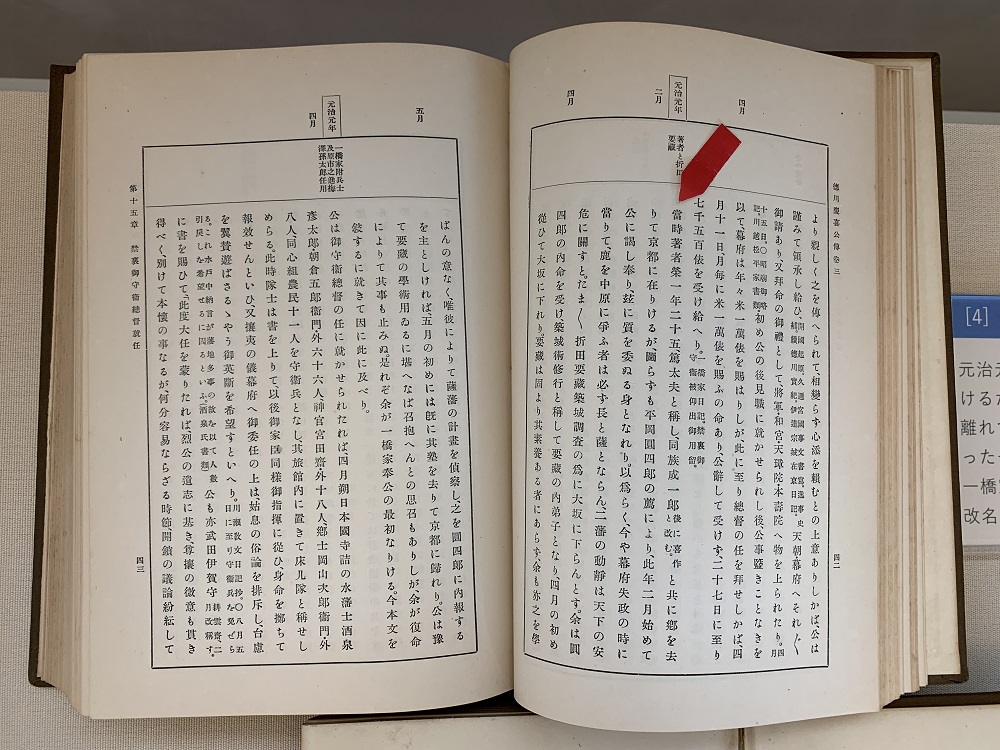 德川慶喜公傳卷三
四二
四月
元治元年
二月
四月
著者と折田
要藏
より親しく之を傳へられて、相變らず心添を賴むとの上意ありしかば、公は
謹みて領承し給ひ、
御請あり、又拜命の御禮として將軍・和宮・天璋院・本壽院へ物を上られたり。
初め公の後見職に就かせられし後、公事蹔きことなきを
以て、幕府は年々米一萬俵を賜はりしが、此に至り總督の任を拜せしかば四
月十一日月每に米一萬俵を賜ふの命あり、公辭して受けず、二十七日に至り
七千五百俵を受け給へり。一橋家日記。禁裏御守衞被仰出御用留。
當時著者榮一年二十五篤太夫と稱し、同族成一郎後に喜作と改む。と共に鄕を去
りて京都に在りけるが圖らずも平岡圓四郎の薦により、此年二月始めて
公に謁し奉り、玆に質を委ぬる身となれり。以爲らく今や幕府失政の時に
當りて、鹿を中原に爭ふ者は必ず長と薩とならん、二藩の動靜は天下の安
危に關すと。たま〱折田要藏築城調査の爲に大坂に下らんとす。余は圓
四郎の內命を受け築城術修行と稱して要藏の內弟子となり、四月の初め
從ひて大坂に下れり。要藏は固より其素養ある者にあらず、余も亦之を學
五月
元治元年
四月
一橋家附兵士
及原市之進梅
澤孫太郎任用
ばんの意なく、唯彼によりて薩藩の計畫を偵察し、之を圓四郎に內報する
を主としければ、五月の初めには旣に其塾を去りて京都に歸れり。公は豫
て要藏の學術用ゐるに堪へなば召抱へんとの思召もありしが、余が復命
によりて其事も止みぬ。是れぞ余が一橋家奉公の最初なりける。今本文を
敍するに就きて因に此に及べり。
公は御守衞總督の任に就かせられたれば、四月朔日本國寺詰の水藩士酒泉
彥太郎・朝倉五郎衞門・外六十六人、神官宮田齋・外十八人、鄕士岡山次郎衞門・外
八人、同心組農民十一人を守衞兵となし、其旅館內に置きて床几隊と稱せし
めらる。此時隊士は書を上りて以後御家臣同樣御指揮に從ひ、身命を擲ちて
報效せんといひ、又攘夷の儀幕府へ御委任の上は、姑息の俗論を排斥し、台慮
を翼贊遊ばさるゝやう御英斷を希望すといへり。川瀨敎文日記抄。〇八月五日に至り守衞兵を免ぜら
る。これ水戶中納言が藩地多事の故を以て人數引戾しを希望せるに因るといふ。酒泉氏書類。公も亦武田伊賀守耕雲齋。二月改稱す。
に書を賜ひて、「此度大任を蒙りたれば、烈公の遺志に基き、尊攘の徵意も貫き
得べく、別けて本懷の事なるが何分容易ならざる時節、開鎖の議論紛紜して
第十五章 禁裏御守衞總督就任
四三
[4]
元治元
けるか
離れて
った一
一橋
改名